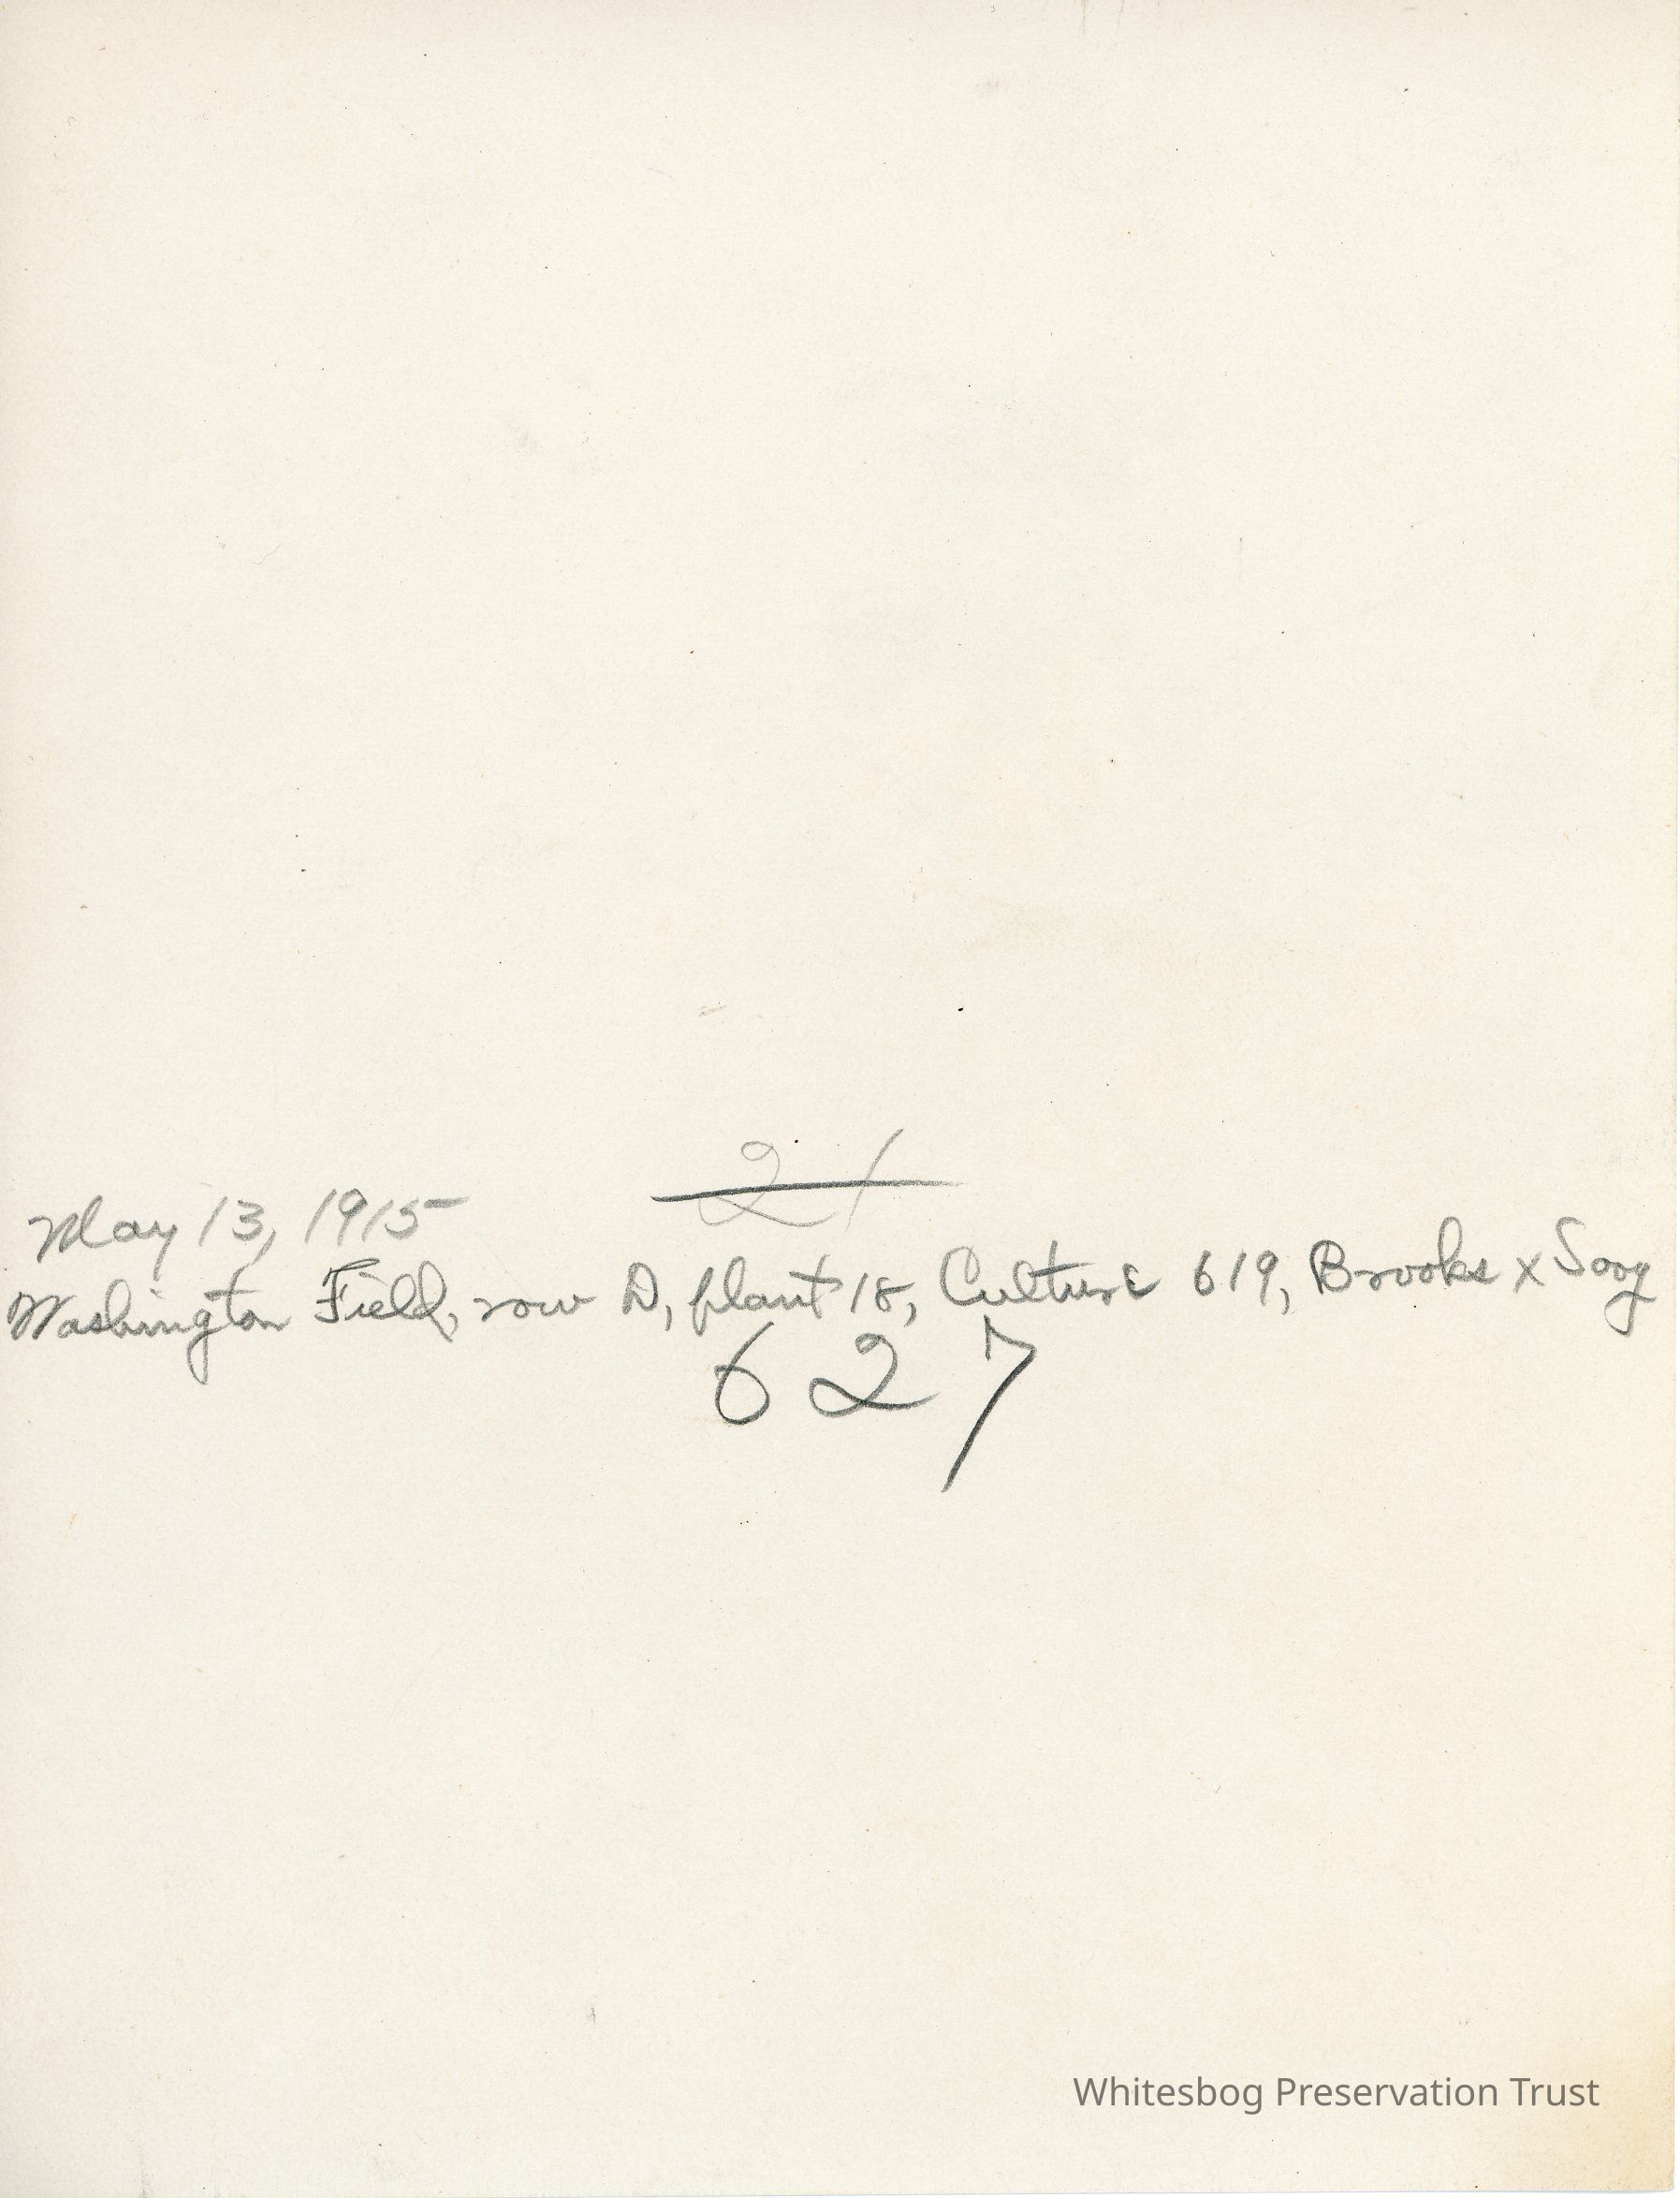 21
May 13, 1915
Washington Field, row D, plant 18, Culture 619, Brooks x Sooy
627
Whitesbog Preservation Trust